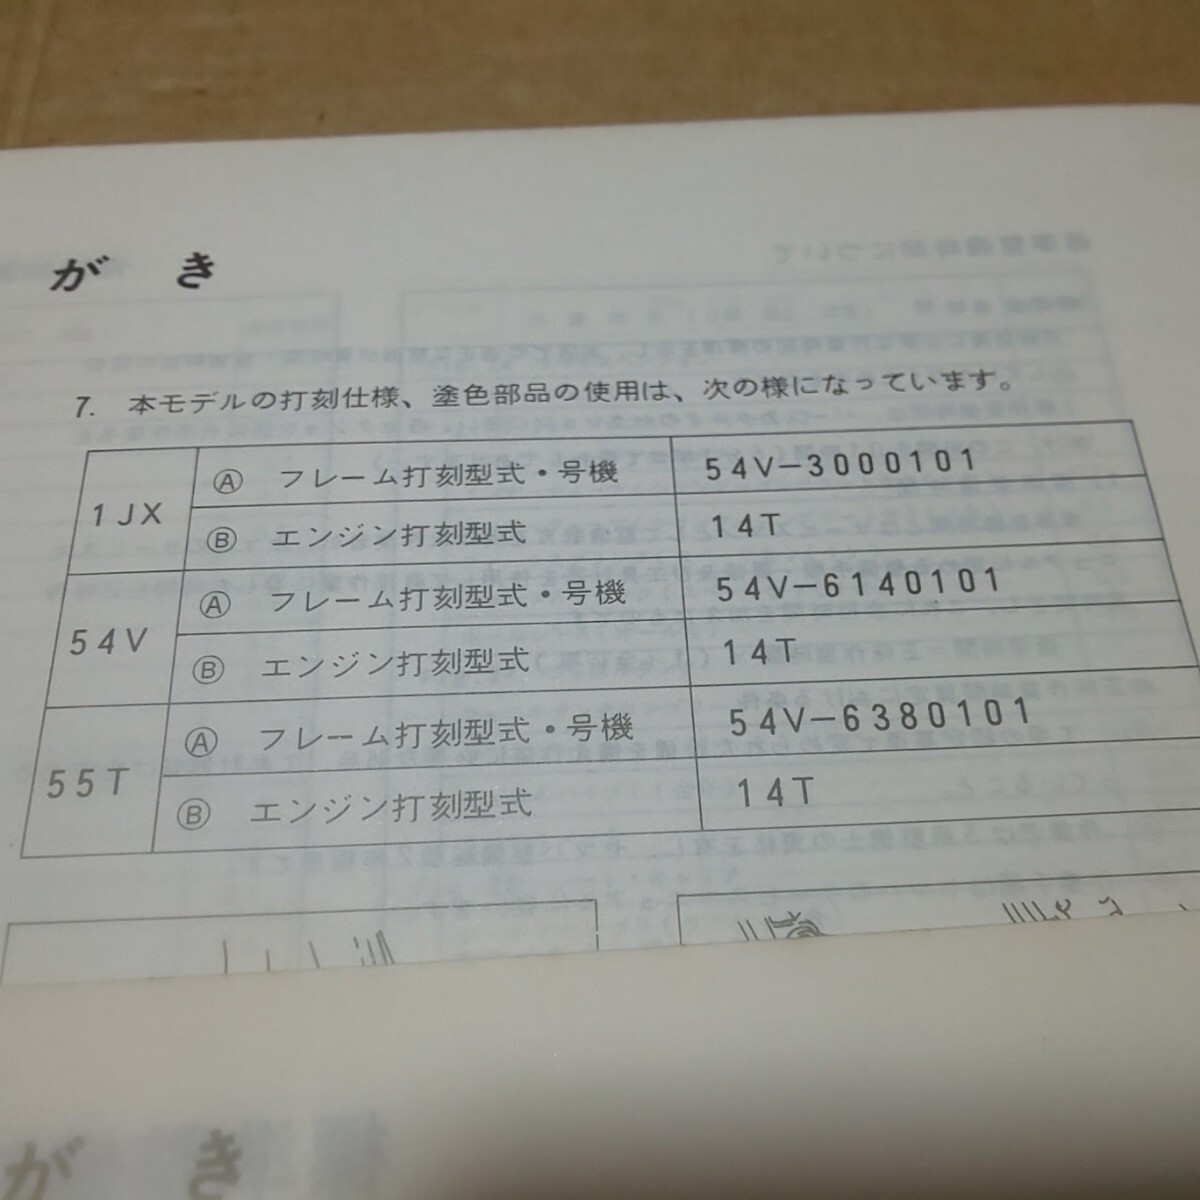 がき
7. 本モデルの打刻仕様、塗色部品の使用は、次の様になっています。
1JX Ⓐ フレーム打刻型式・号機 54V-3000101
Ⓑ エンジン打刻型式 14T
54V Ⓐ フレーム打刻型式・号機 54V-6140101
Ⓑ エンジン打刻型式 14T
55T Ⓐ フレーム打刻型式・号機 54V-6380101
Ⓑ エンジン打刻型式 14T
がき